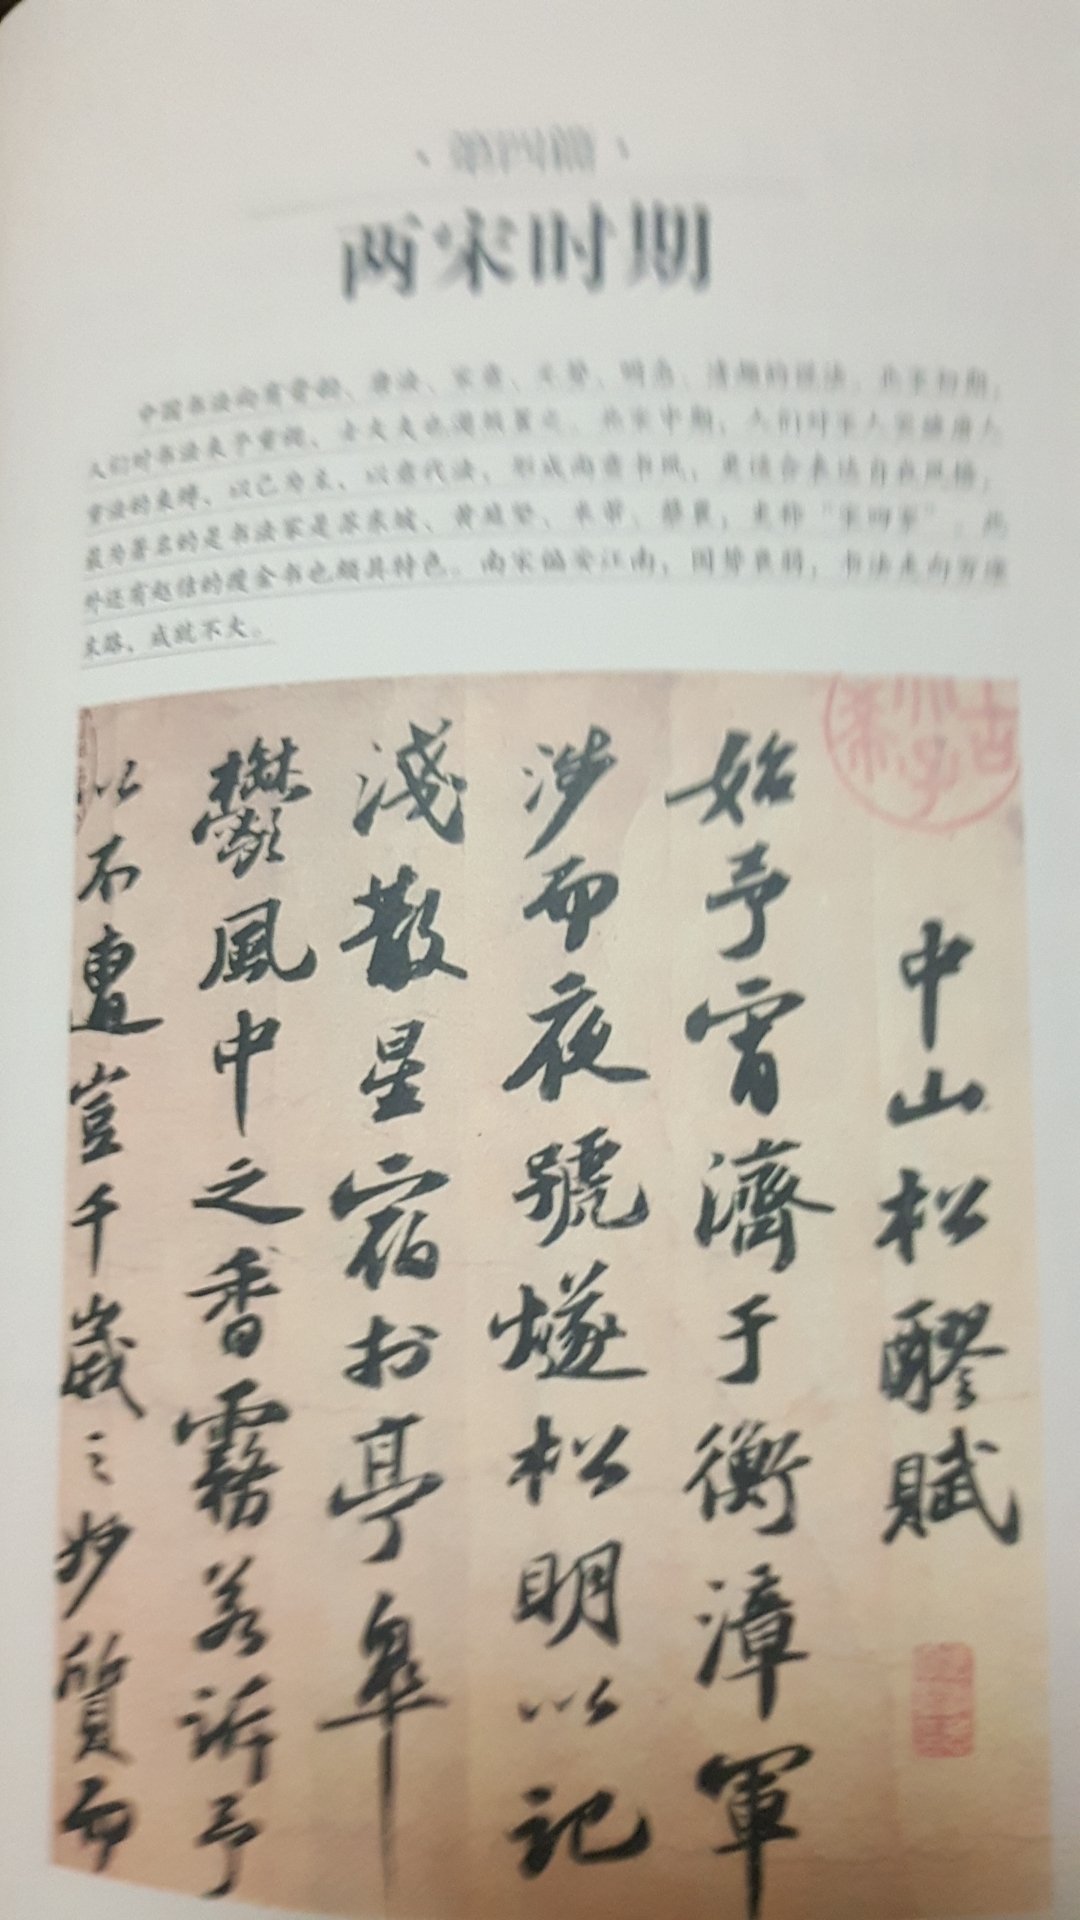 第四篇
两宋时期
中国书法向有晋韵、唐法、宋意、元势、明态、清趣的说法。北宋初期，
人们对书法失于重视、士大夫也漫然置之。北宋中期，人们对宋人
重法的束缚，以己为主，以意代法，形成尚意书风，更适合表达自我风格，
最为著名的是书法家是苏东坡、黄庭坚、米芾、蔡襄，史称“宋四家”，此
外还有赵佶的瘦金书也颇具特色。南宋偏安江南，国势衰弱，书法走向穷途
末路，成就不大。
中山松醪賦
始予宵濟于衡漳軍
涉而夜號燧松明以記
淺散星宿於亭皋
鬱風中之香霧若訴予
以不遭豈千歲之妙質而